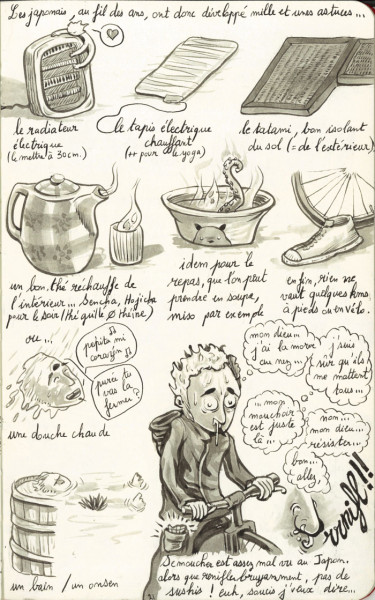 Les japonais, au fil des ans, ont donc développé mille et unes astuces...
le radiateur
électrique
(le mettre à 30cm.)
le tapis électrique
chauffant
(++ pour le yoga)
le tatami, bon isolant
du sol (= de l'extérieur)
un bon thé réchauffe de
l'intérieur... Sencha, Hojicha
pour le soir (thé grillé Ø théine)
idem pour le
repas, que l'on peut
prendre en soupe,
miso par exemple
enfin, rien ne
vaut quelques kms
à pieds ou en vélo.
ou...
pepita mi
corazón
purée tu
vas la
fermer?
une douche chaude
un bain / un onsen
mon dieu...
j'ai la morve
au nez...
j'suis
sûr qu'ils
me mattent
tous...
...mon
mouchoir
est juste
là...
non...
mon dieu...
résister...
bon...
allez,
Se moucher est assez mal vu au Japon.
alors que renifler bruyamment, pas de
sushis ! euh, soucis j'veux dire...